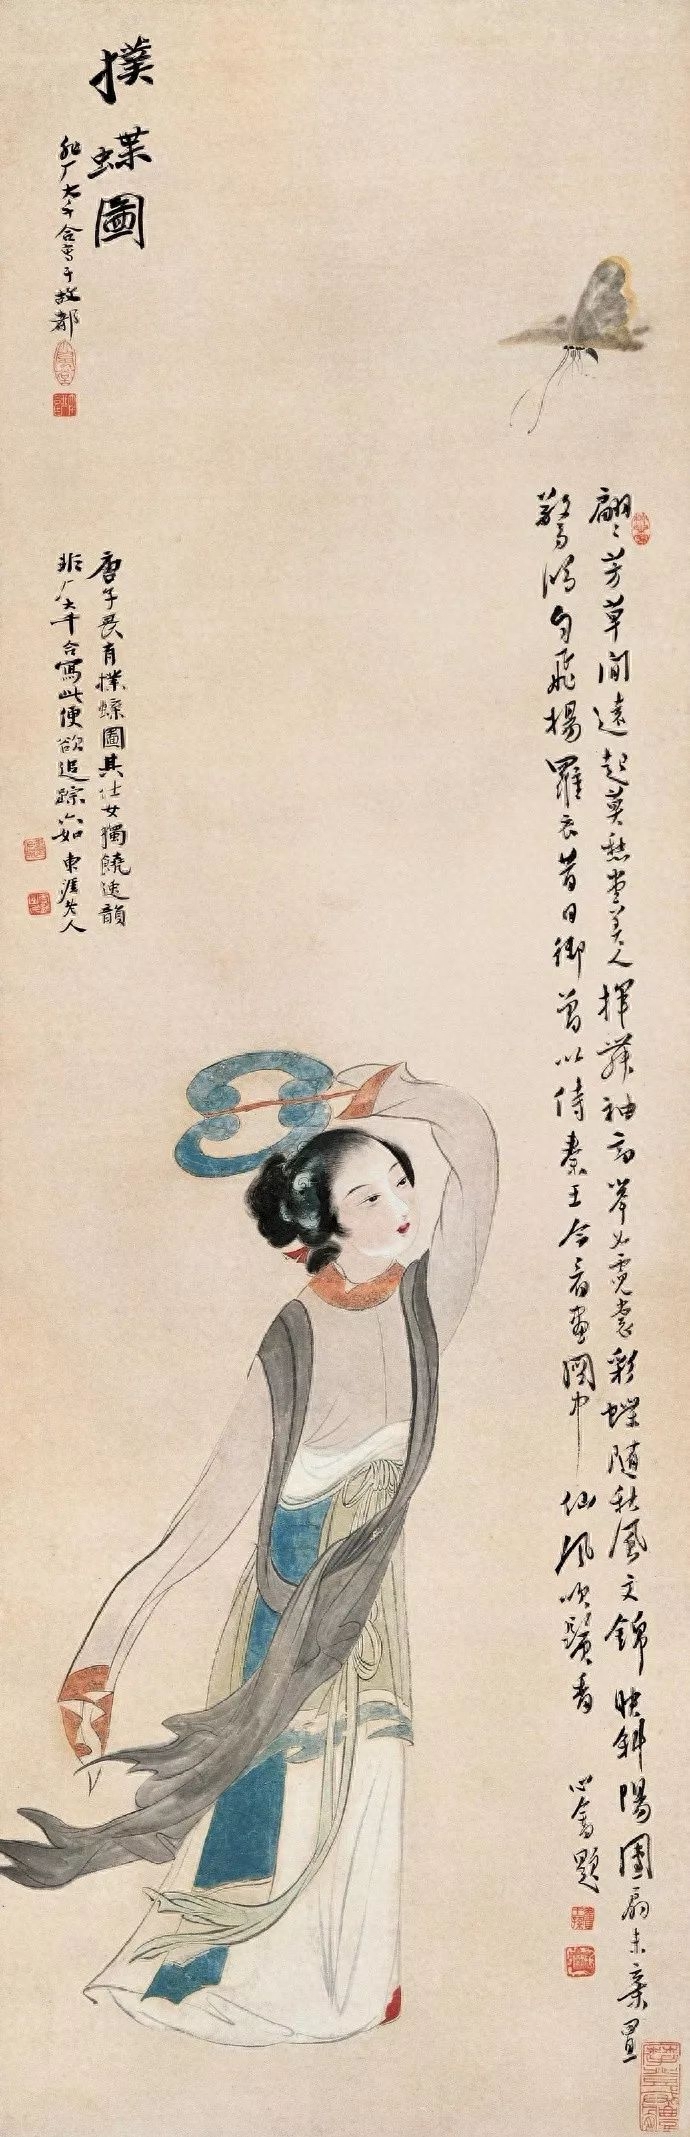 翩〻芳草間遠起莫愁堂美人揮舞袖高举如霓裳彩蝶隨秋風文錦映斜陽團扇未棄置
驚鴻自飛揚羅衣昔日御曾以侍秦王今看畫圖中仙風吹鬢香
心畬題
撲蝶圖
非厂大千合寫于故都
唐子畏有撲蝶圖其仕女獨饒逸韻
非厂大千合寫此便欲追踪六如 東涯老人